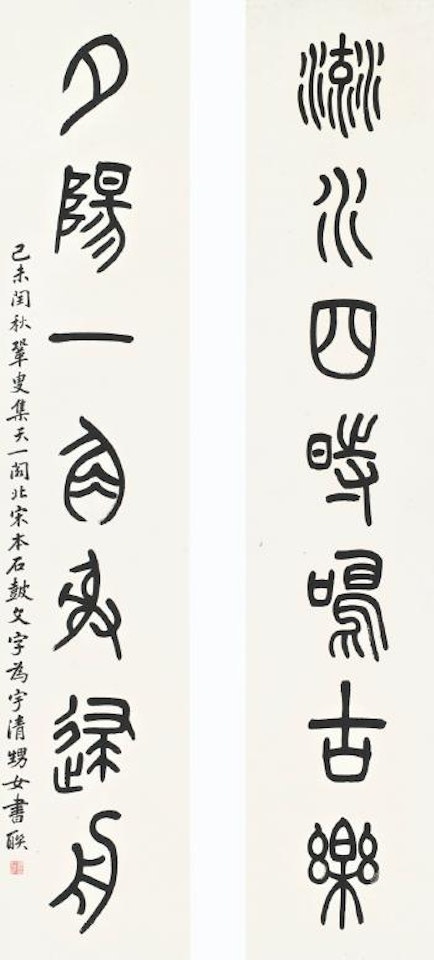 流水四時鳴古樂
夕陽一角射歸舟
己未閏秋鞏叟集天一閣北宋本石鼓文字為宇清甥女書聯